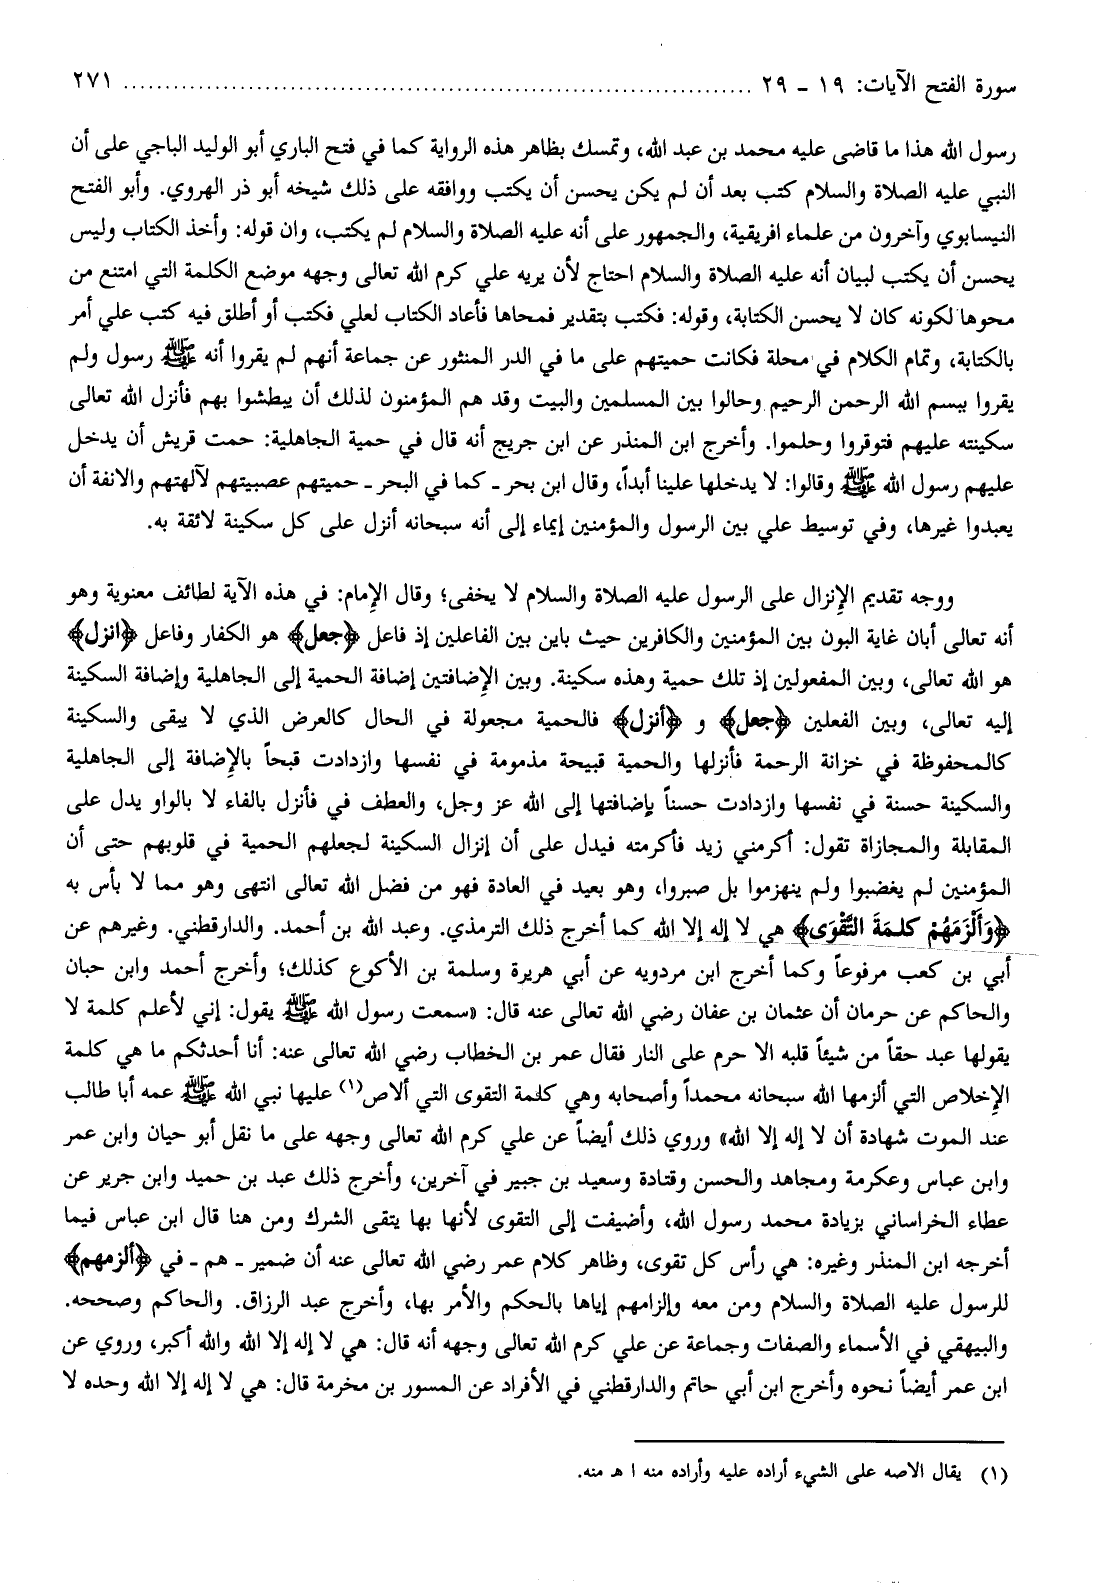 سورة الفتح الآيات: ١٩ ـ ٢٩ ........................................................................ ٢٧١
رسول الله هذا ما قاضى عليه محمد بن عبد الله، وتمسك بظاهر هذه الرواية كما في فتح الباري أبو الوليد الباجي على أن
النبي عليه الصلاة والسلام كتب بعد أن لم يكن يحسن أن يكتب ووافقه على ذلك شيخه أبو ذر الهروي. وأبو الفتح
النيسابوي وآخرون من علماء افريقية، والجمهور على أنه عليه الصلاة والسلام لم يكتب، وان قوله: وأخذ الكتاب وليس
يحسن أن يكتب لبيان أنه عليه الصلاة والسلام احتاج لأن يريه علي كرم الله تعالى وجهه موضع الكلمة التي امتنع من
محوها لكونه كان لا يحسن الكتابة، وقوله: فكتب بتقدير فمحاها فأعاد الكتاب لعلي فكتب أو أطلق فيه كتب علي أمر
بالكتابة، وتمام الكلام في محلة فكانت حميتهم على ما في الدر المنثور عن جماعة أنهم لم يقروا أنه ﷺ رسول ولم
يقروا ببسم الله الرحمن الرحيم وحالوا بين المسلمين والبيت وقد هم المؤمنون لذلك أن يبطشوا بهم فأنزل الله تعالى
سكينته عليهم فتوقروا وحلموا. وأخرج ابن المنذر عن ابن جريج أنه قال في حمية الجاهلية: حمت قريش أن يدخل
عليهم رسول الله ﷺ وقالوا: لا يدخلها علينا أبداً، وقال ابن بحر ـ كما في البحر ـ حميتهم عصبيتهم لآلهتهم والانفة أن
يعبدوا غيرها، وفي توسيط علي بين الرسول والمؤمنين إيماء إلى أنه سبحانه أنزل على كل سكينة لائقة به.
ووجه تقديم الإنزال على الرسول عليه الصلاة والسلام لا يخفى؛ وقال الإمام: في هذه الآية لطائف معنوية وهو
أنه تعالى أبان غاية البون بين المؤمنين والكافرين حيث باين بين الفاعلين إذ فاعل ﴿جعل﴾ هو الكفار وفاعل ﴿انزل﴾
هو الله تعالى، وبين المفعولين إذ تلك حمية وهذه سكينة. وبين الإضافتين إضافة الحمية إلى الجاهلية وإضافة السكينة
إليه تعالى، وبين الفعلين ﴿جعل﴾ و ﴿أنزل﴾ فالحمية مجعولة في الحال كالعرض الذي لا يبقى والسكينة
كالمحفوظة في خزانة الرحمة فأنزلها والحمية قبيحة مذمومة في نفسها وازدادت قبحاً بالإضافة إلى الجاهلية
والسكينة حسنة في نفسها وازدادت حسناً بإضافتها إلى الله عز وجل، والعطف في فأنزل بالفاء لا بالواو يدل على
المقابلة والمجازاة تقول: أكرمني زيد فأكرمته فيدل على أن إنزال السكينة لجعلهم الحمية في قلوبهم حتى أن
المؤمنين لم يغضبوا ولم ينهزموا بل صبروا، وهو بعيد في العادة فهو من فضل الله تعالى انتهى وهو مما لا بأس به
﴿وَأَلْزَمَهُمْ كلمَةَ التَّقْوَى﴾ هي لا إله إلا الله كما أخرج ذلك الترمذي. وعبد الله بن أحمد. والدارقطني. وغيرهم عن
أبي بن كعب مرفوعاً وكما أخرج ابن مردويه عن أبي هريرة وسلمة بن الأكوع كذلك؛ وأخرج أحمد وابن حبان
والحاكم عن حرمان أن عثمان بن عفان رضي الله تعالى عنه قال: «سمعت رسول الله ﷺ يقول: إني لأعلم كلمة لا
يقولها عبد حقاً من شيئاً قلبه الا حرم على النار فقال عمر بن الخطاب رضي الله تعالى عنه: أنا أحدثكم ما هي كلمة
الإخلاص التي ألزمها الله سبحانه محمداً وأصحابه وهي كلمة التقوى التي ألاص(١) عليها نبي الله ﷺ عمه أبا طالب
عند الموت شهادة أن لا إله إلا الله» وروي ذلك أيضاً عن علي كرم الله تعالى وجهه على ما نقل أبو حيان وابن عمر
وابن عباس وعكرمة ومجاهد والحسن وقتادة وسعيد بن جبير في آخرين، وأخرج ذلك عبد بن حميد وابن جرير عن
عطاء الخراساني بزيادة محمد رسول الله، وأضيفت إلى التقوى لأنها بها يتقى الشرك ومن هنا قال ابن عباس فيما
أخرجه ابن المنذر وغيره: هي رأس كل تقوى، وظاهر كلام عمر رضي الله تعالى عنه أن ضمير ـ هم ـ في ﴿ألزمهم﴾
للرسول عليه الصلاة والسلام ومن معه وإلزامهم إياها بالحكم والأمر بها، وأخرج عبد الرزاق. والحاكم وصححه.
والبيهقي في الأسماء والصفات وجماعة عن علي كرم الله تعالى وجهه أنه قال: هي لا إله إلا الله والله أكبر، وروي عن
ابن عمر أيضاً نحوه وأخرج ابن أبي حاتم والدارقطني في الأفراد عن المسور بن مخرمة قال: هي لا إله إلا الله وحده لا
(١) يقال الاصه على الشيء أراده عليه وأراده منه ا هـ منه.